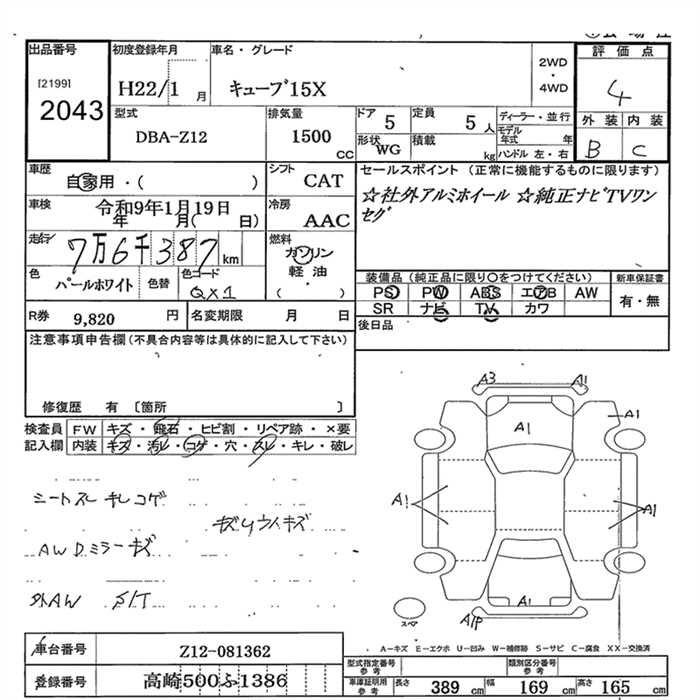 出品番号
[2199]
2043
初度登録年月
H22/1 月
車名・グレード
キューブ15X
2WD
・
4WD
評価点
4
外装 内装
B C
型式
DBA-Z12
排気量
1500
CC
ドア 5
形状 WG
定員 5 人
積載 kg
ディーラー・並行
モデル年式 年
ハンドル 左・右
車歴
自家用・( )
シフト
CAT
セールスポイント (正常に機能するものに限ります)
☆社外アルミホイール ☆純正ナビTVワン
セグ
車検 令和9年1月19日
年 月( 日)
冷房
AAC
走行 7万6千387 km
燃料
ガソリン
軽・油
( )
色
パールホワイト
色替
色コード
QX1
装備品(純正品に限り○をつけてください)
PS PW ABS エアB AW
SR ナビ TV カワ
新車保証書
有・無
R券 9,820 円
名変期限 月 日
後日品
注意事項申告欄(不具合内容等は具体的に記入して下さい)
修復歴 有 〔箇所 〕
検査員 FW キズ・飛石・ヒビ割・リペア跡・×要
記入欄 内装 キズ・汚レ・コゲ・穴・スレ・キレ・破レ
シートスレ キレ コゲ
キズUウスイキズ
AW Dミラーキズ
外AW S/T
A3 A1
A1
A1
A1
A1
A1
A1P
スペア
A-キズ E-エクボ U-凹み W-補修跡 S-サビ C-腐食 XX-交換済
車台番号 Z12-081362
登録番号 高崎500ふ1386
型式指定番号
参考
類別区分番号
参考
車庫証明用
参考
長さ 389 cm 幅 169 cm 高さ 165 cm